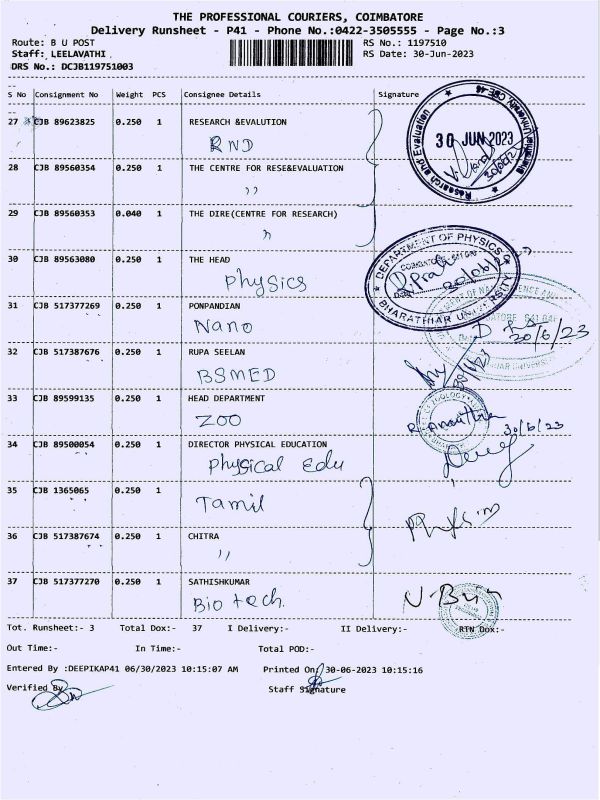 THE PROFESSIONAL COURIERS, COIMBATORE
Delivery Runsheet - P41 - Phone No.:0422-3505555 - Page No.:3
Route: B U POST RS No.: 1197510
Staff: LEELAVATHI RS Date: 30-Jun-2023
DRS No.: DCJB119751003
S No Consignment No Weight PCS Consignee Details Signature
27 CJB 89623825 0.250 1 RESEARCH &EVALUTION
RND
28 CJB 89560354 0.250 1 THE CENTRE FOR RESE&EVALUATION
,,
29 CJB 89560353 0.040 1 THE DIRE(CENTRE FOR RESEARCH)
,,
Research and Evaluation
30 JUN 2023
30 CJB 89563080 0.250 1 THE HEAD
Physics
DEPARTMENT OF PHYSICS
BHARATHIAR UNIVERSITY
31 CJB 517377269 0.250 1 PONPANDIAN
Nano
20/6/23
32 CJB 517387676 0.250 1 RUPA SEELAN
BSMED
33 CJB 89599135 0.250 1 HEAD DEPARTMENT
ZOO
30/6/23
34 CJB 89500054 0.250 1 DIRECTOR PHYSICAL EDUCATION
Physical Edu
35 CJB 1365065 0.250 1
Tamil
36 CJB 517387674 0.250 1 CHITRA
,,
37 CJB 517377270 0.250 1 SATHISHKUMAR
Bio tech.
Tot. Runsheet:- 3 Total Dox:- 37 I Delivery:- II Delivery:- RTN Dox:-
Out Time:- In Time:- Total POD:-
Entered By :DEEPIKAP41 06/30/2023 10:15:07 AM Printed On: 30-06-2023 10:15:16
Verified By Staff Signature